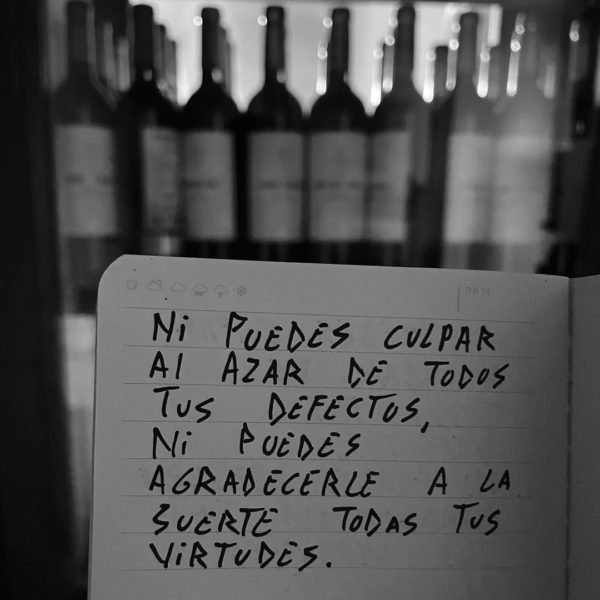 Ni PUEDES CULPAR
Al AZAR DE TODOS
TUS DEFECTOS,
Ni PUEDES
AGRADECERLE A LA
SUERTE TODAS TUS
ViRTUDES.